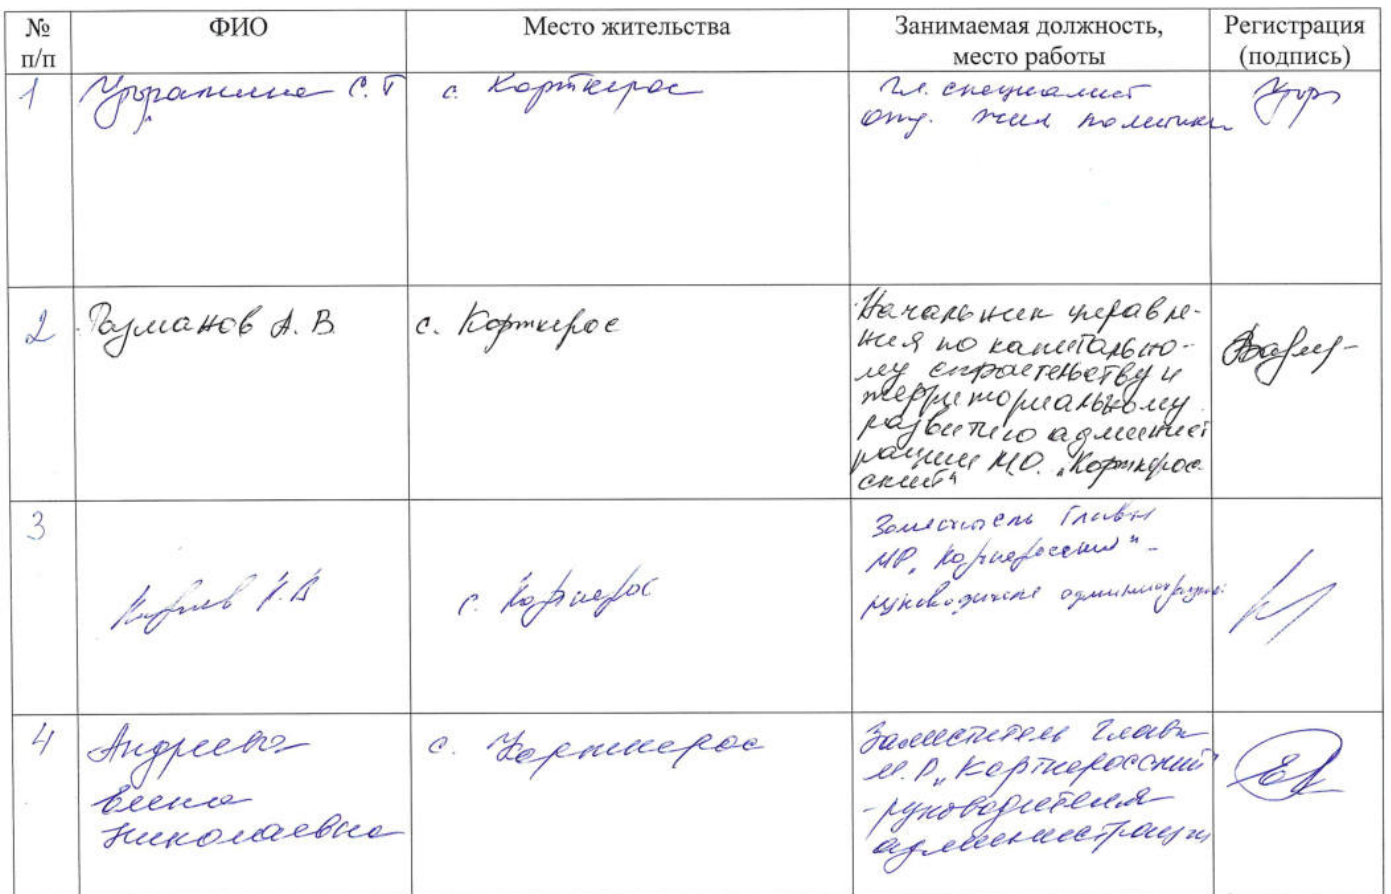 № п/п
ФИО
Место жительства
Занимаемая должность, место работы
Регистрация (подпись)
1
С. Г
с. Корткерос
гл. специалист
отд. жил политики
2
А. В.
с. Корткерос
Начальник управле-
ния по капитально-
му строительству и
территориальному
развитию админист
рации М.О. „Корткерос
ский"
3
с. Корткерос
Заместитель Главы
МР „Корткеросский" -
руководителя администрации
4
Андреева
Елена
Николаевна
с. Корткерос
Заместитель Главы
М.Р „Корткеросский"
- руководителя
администрации